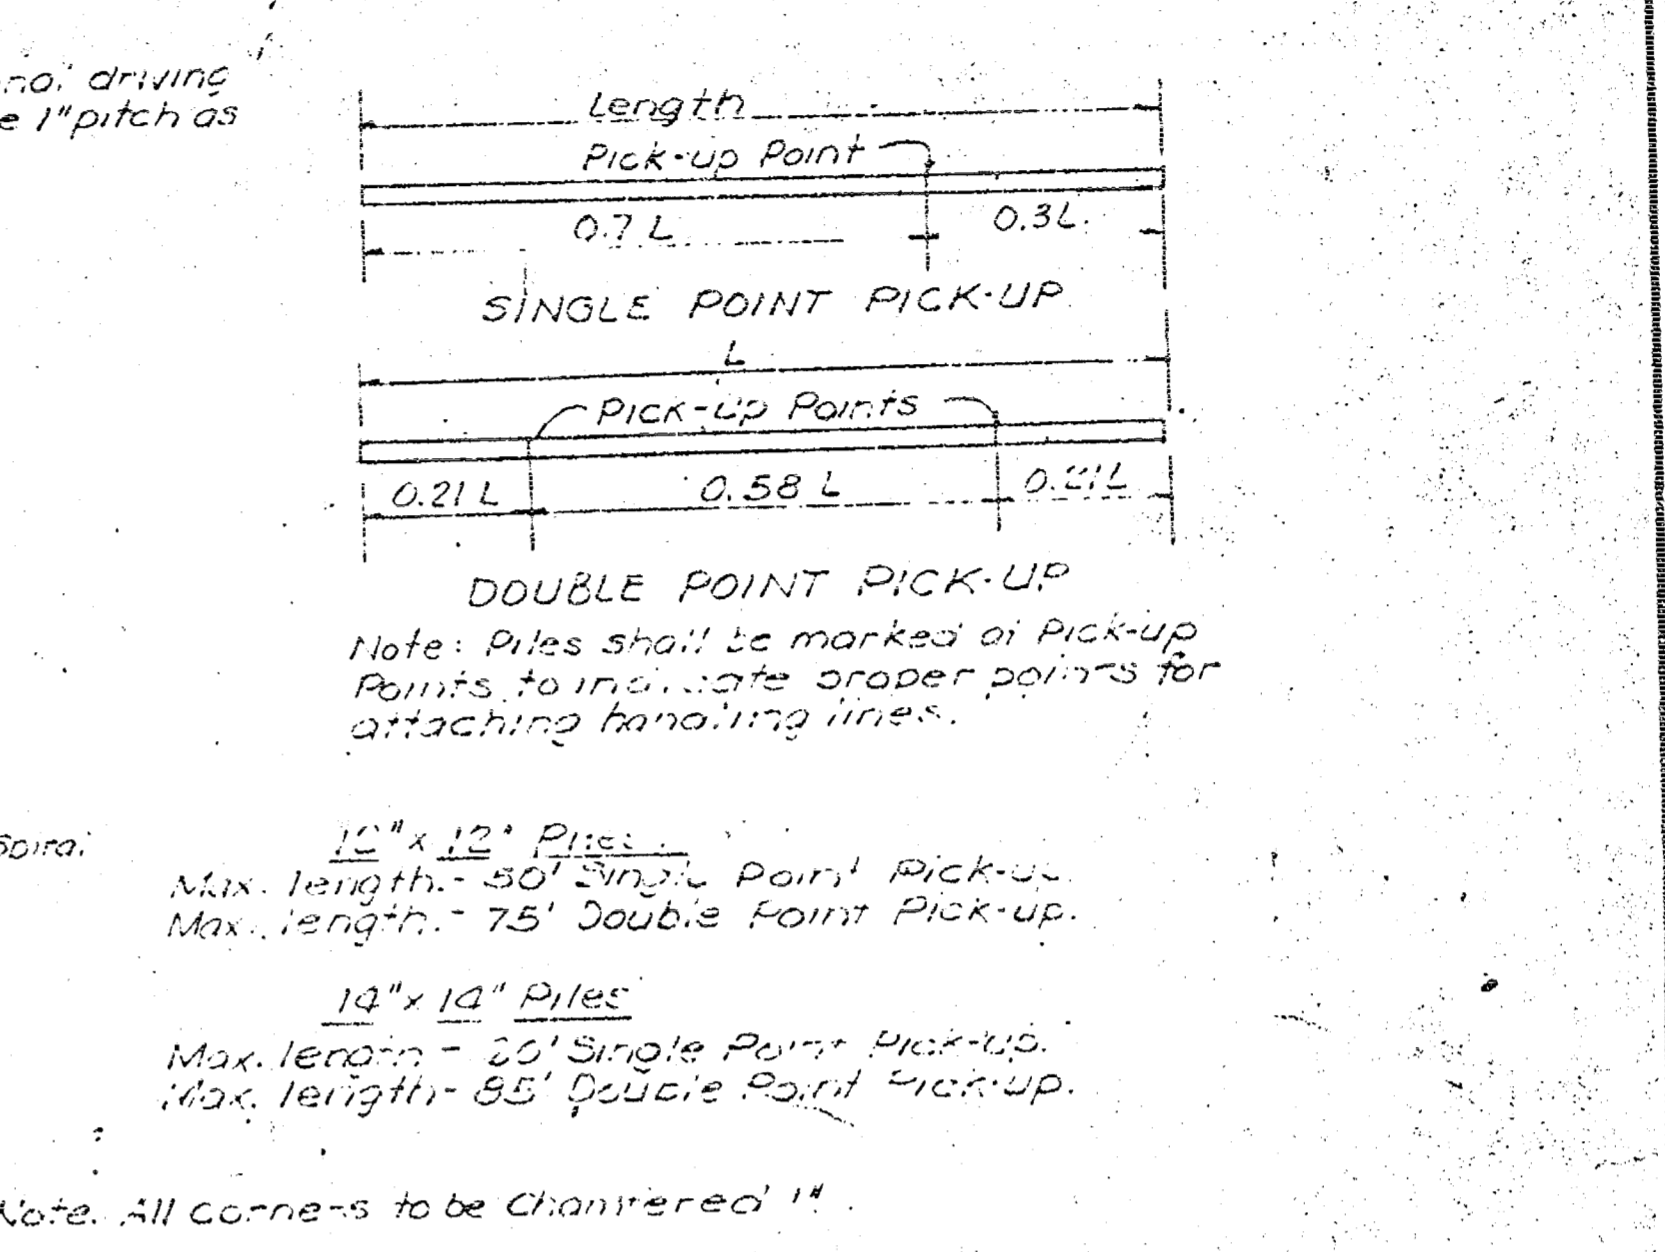 driving
1" pitch as
Length
Pick-up Point
0.7 L
0.3 L
SINGLE POINT PICK-UP
L
Pick-up Points
0.21 L
0.58 L
0.21 L
DOUBLE POINT PICK-UP
Note: Piles shall be marked at Pick-up
Points to indicate proper points for
attaching handling lines.
Spiral
12" x 12" Piles
Max. length - 50' Single Point Pick-up.
Max. length - 75' Double Point Pick-up.
14" x 14" Piles
Max. length - Single Point Pick-up.
Max. length - 85' Double Point Pick-up.
Note. All corners to be Chamfered 1".